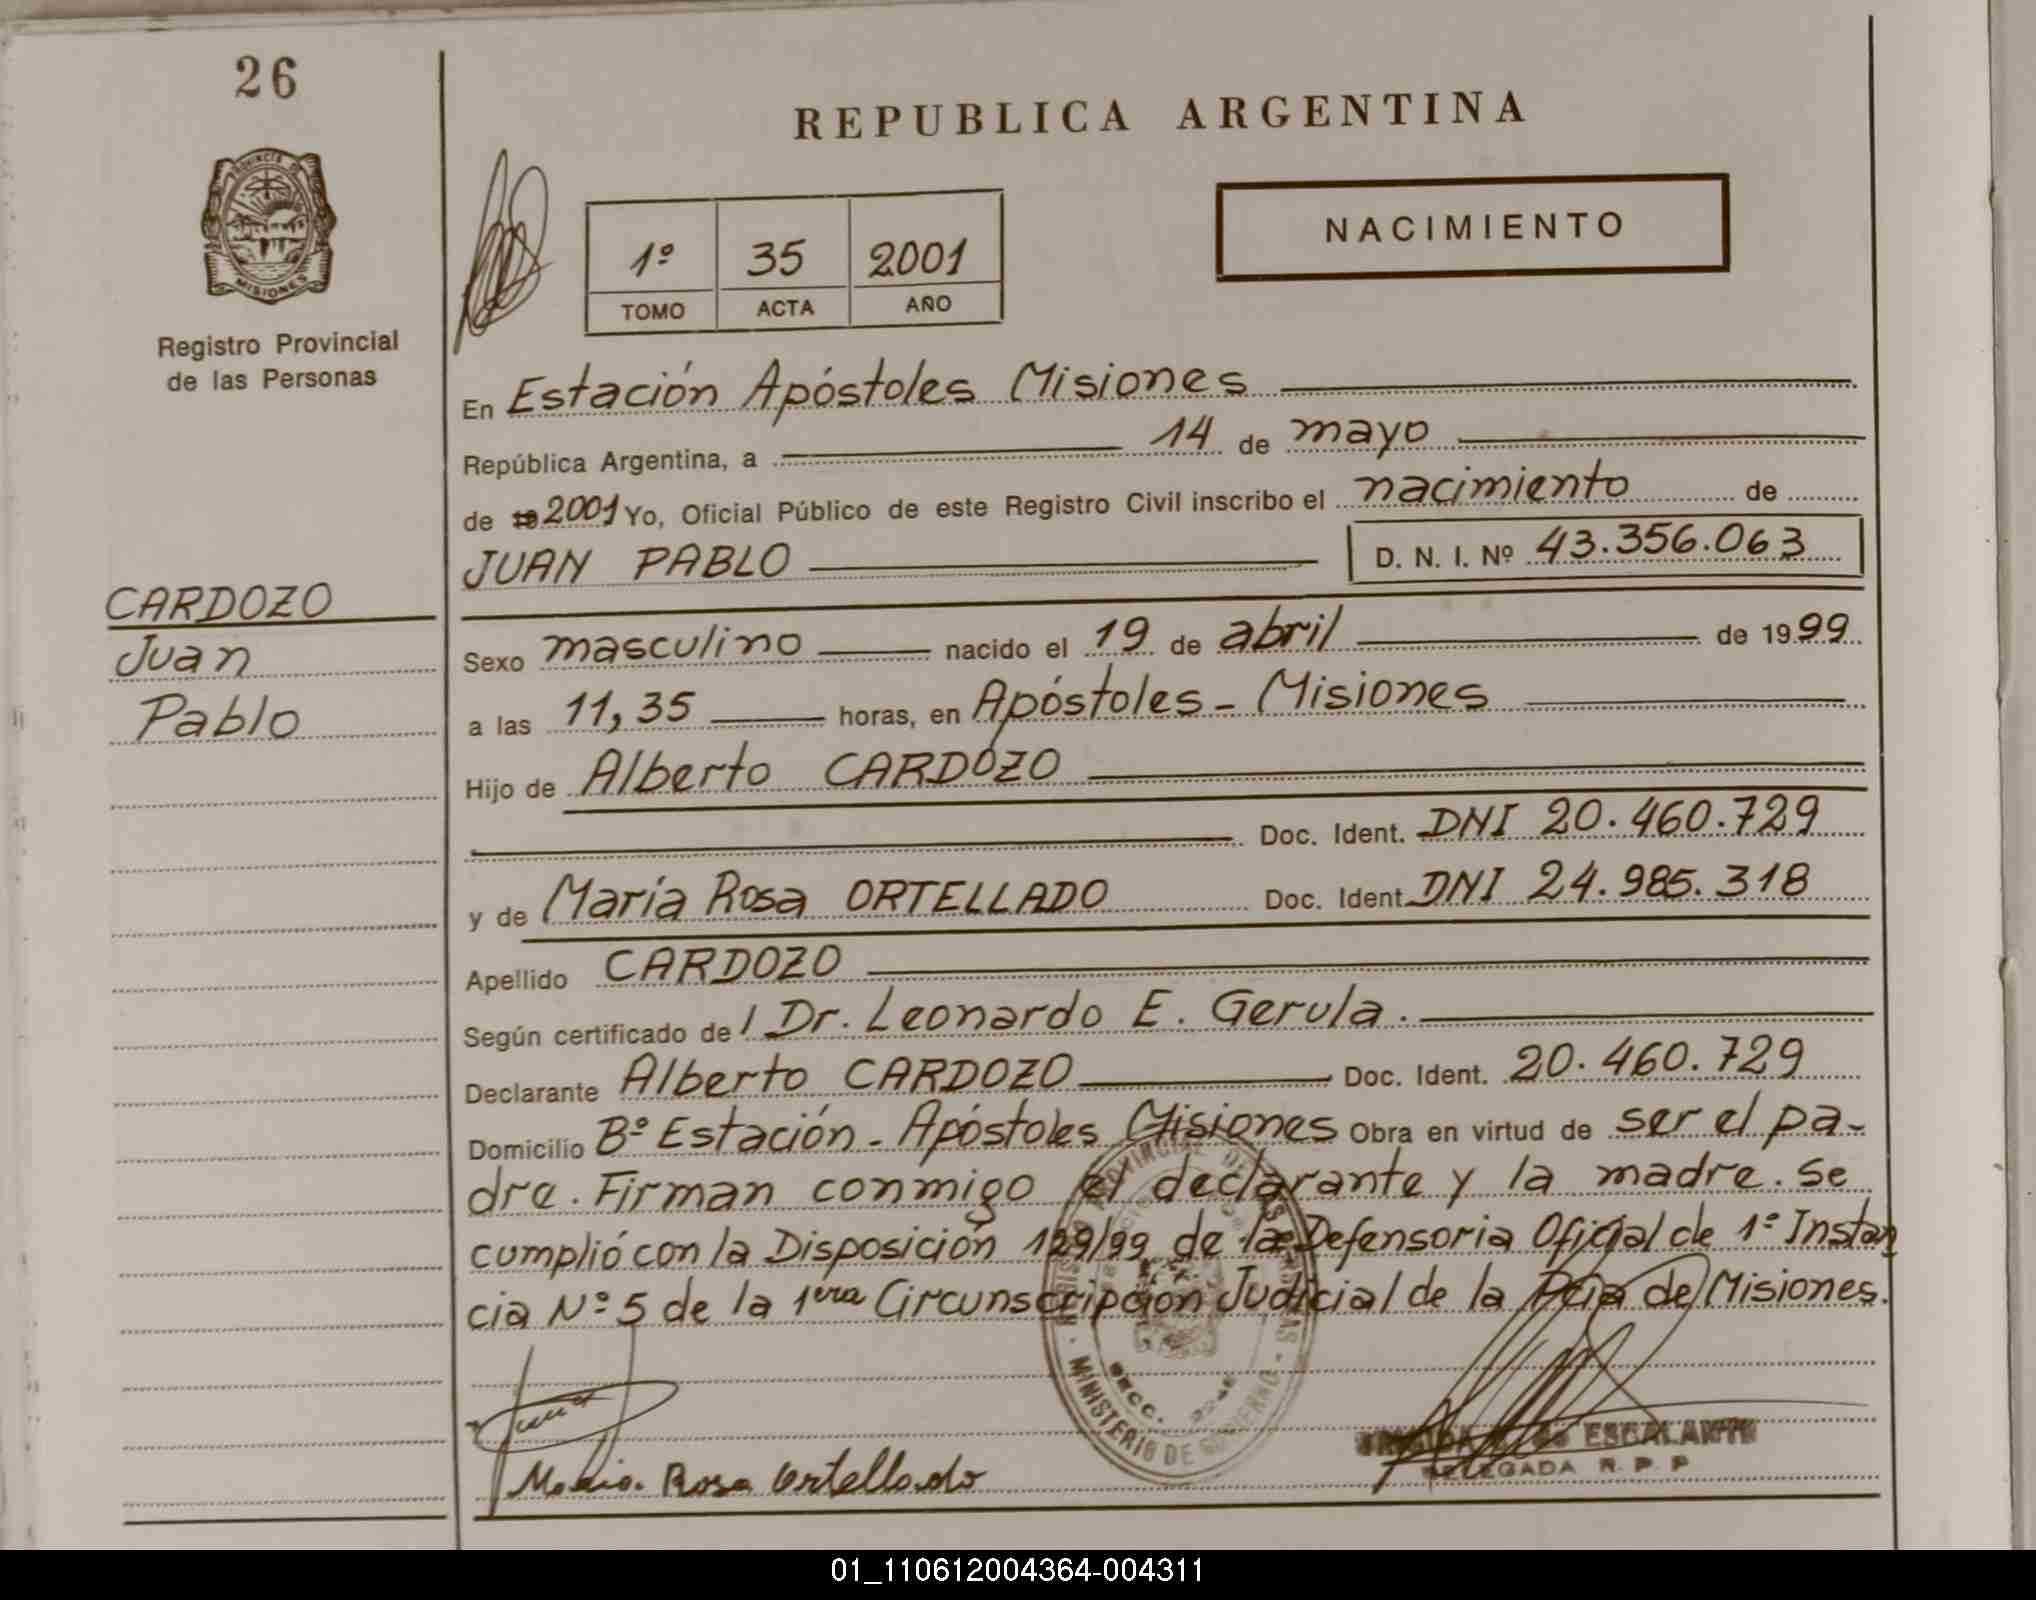 26
REPUBLICA ARGENTINA
NACIMIENTO
1º 35 2001
TOMO ACTA AÑO
PROVINCIA DE
MISIONES
Registro Provincial
de las Personas
En Estación Apóstoles Misiones
República Argentina, a 14 de mayo
de 19 2001 Yo, Oficial Público de este Registro Civil inscribo el nacimiento de
JUAN PABLO D. N. I. Nº 43.356.063
CARDOZO
Juan
Pablo
Sexo masculino nacido el 19 de abril de 1999
a las 11,35 horas, en Apóstoles - Misiones
Hijo de Alberto CARDOZO
Doc. Ident. DNI 20.460.729
y de María Rosa ORTELLADO Doc. Ident. DNI 24.985.318
Apellido CARDOZO
Según certificado de l Dr. Leonardo E. Gerula.
Declarante Alberto CARDOZO Doc. Ident. 20.460.729
Domicilio Bº Estación - Apóstoles Misiones Obra en virtud de ser el pa-
dre. Firman conmigo el declarante y la madre. Se
cumplió con la Disposición 129/99 de la Defensoria Oficial de 1º Instan
cia Nº 5 de la 1era Circunscripción Judicial de la Pcia de Misiones.
MINISTERIO DE GOBIERNO
Maria Rosa Ortellado
ESCALANTE
DELEGADA R. P. P
01_110612004364-004311